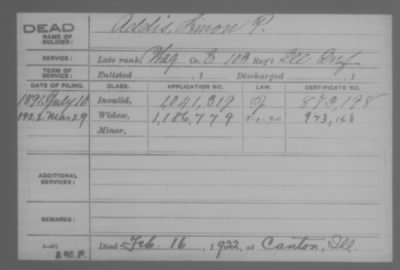 DEAD
NAME OF SOLDIER: Addis, Simon P.
SERVICE: Late rank, Wag Co. E 103 Reg't Ill Inf.
TERM OF SERVICE: Enlisted , 1 Discharged , 1
DATE OF FILING. CLASS. APPLICATION NO. LAW. CERTIFICATE NO.
1891, July 10 Invalid, 1041,319 873,198
1922 Mar 29 Widow, 1,186,779 973,148
Minor,
ADDITIONAL SERVICES:
REMARKS:
Died Feb. 16, 1922, at Canton, Ill.